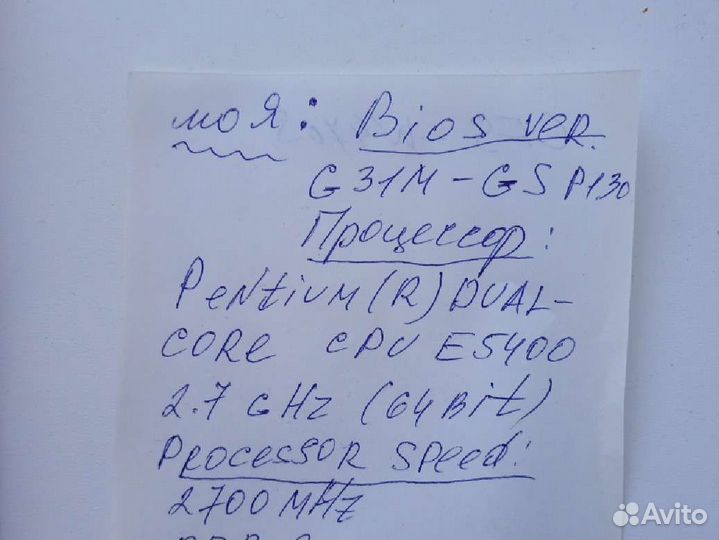 моя: Bios ver.
G31M-GS P1.30
Процессор:
Pentium(R) DUAL-
CORE CPU E5400
2.7 GHz (64Bit)
Processor speed:
2700 MHz
Avito